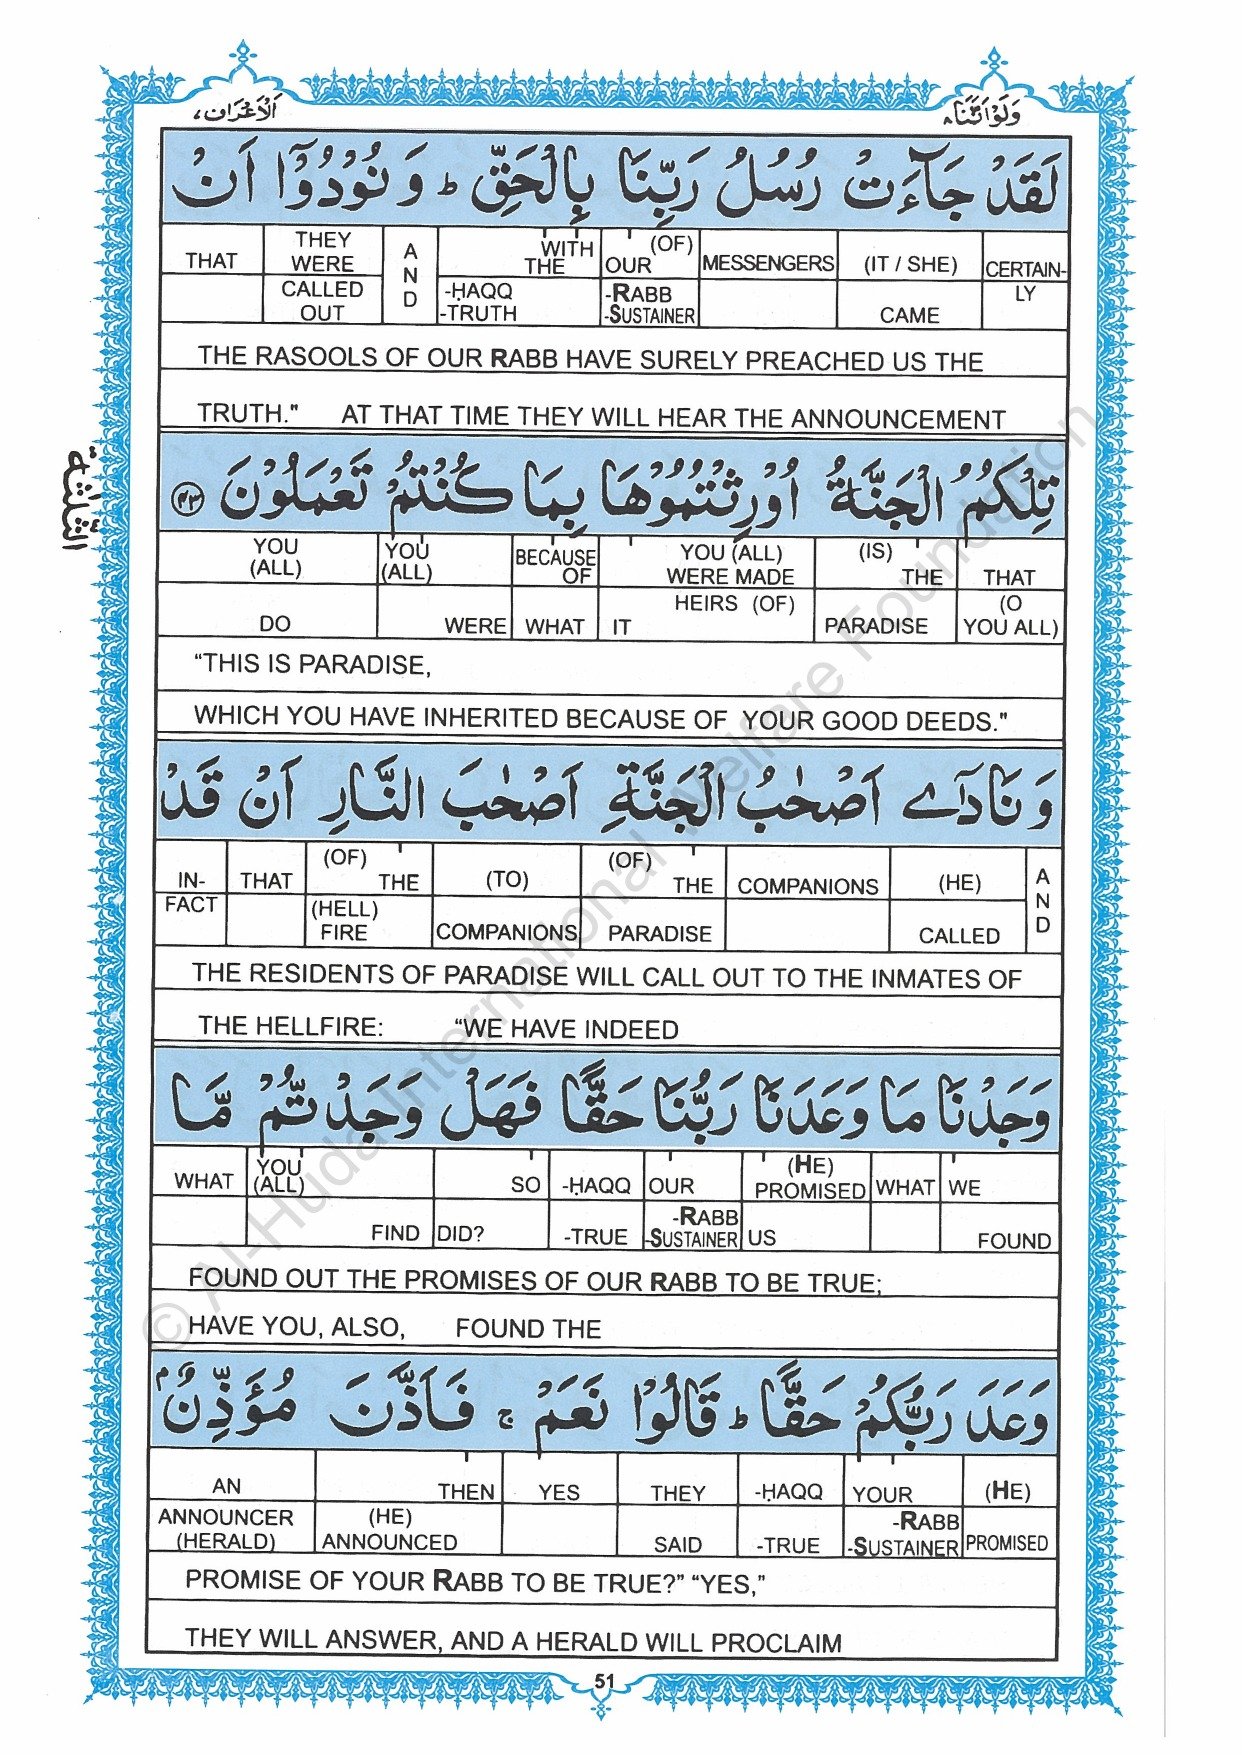 وَلَوْاَنَّنَا ٨
اَلْاَعْرَاف ٧
لَقَدْ جَآءَتْ رُسُلُ رَبِّنَا بِالْحَقِّ ؕ وَ نُوْدُوْۤا اَنْ
THAT THEY WERE CALLED OUT AND WITH THE -ḤAQQ -TRUTH (OF) OUR -RABB -SUSTAINER MESSENGERS (IT / SHE) CAME CERTAIN-LY
THE RASOOLS OF OUR RABB HAVE SURELY PREACHED US THE
TRUTH." AT THAT TIME THEY WILL HEAR THE ANNOUNCEMENT
تِلْكُمُ الْجَنَّةُ اُوْرِثْتُمُوْهَا بِمَا كُنْتُمْ تَعْمَلُوْنَ ٤٣
الثلثة
YOU (ALL) DO YOU (ALL) WERE BECAUSE OF WHAT YOU (ALL) WERE MADE HEIRS (OF) IT (IS) THE PARADISE THAT (O YOU ALL)
“THIS IS PARADISE,
WHICH YOU HAVE INHERITED BECAUSE OF YOUR GOOD DEEDS."
وَ نَادٰۤى اَصْحٰبُ الْجَنَّةِ اَصْحٰبَ النَّارِ اَنْ قَدْ
IN-FACT THAT (OF) THE (HELL) FIRE (TO) COMPANIONS (OF) THE PARADISE COMPANIONS (HE) CALLED AND
THE RESIDENTS OF PARADISE WILL CALL OUT TO THE INMATES OF
THE HELLFIRE: “WE HAVE INDEED
وَجَدْنَا مَا وَعَدَنَا رَبُّنَا حَقًّا فَهَلْ وَجَدْتُّمْ مَّا
WHAT YOU (ALL) FIND SO DID? -ḤAQQ -TRUE OUR -RABB -SUSTAINER (HE) PROMISED US WHAT WE FOUND
FOUND OUT THE PROMISES OF OUR RABB TO BE TRUE;
HAVE YOU, ALSO, FOUND THE
وَعَدَ رَبُّكُمْ حَقًّا ؕ قَالُوْا نَعَمْ ۚ فَاَذَّنَ مُؤَذِّنٌۢ
AN ANNOUNCER (HERALD) THEN (HE) ANNOUNCED YES THEY SAID -ḤAQQ -TRUE YOUR -RABB -SUSTAINER (HE) PROMISED
PROMISE OF YOUR RABB TO BE TRUE?” “YES,”
THEY WILL ANSWER, AND A HERALD WILL PROCLAIM
51
© Al-Huda International Welfare Foundation